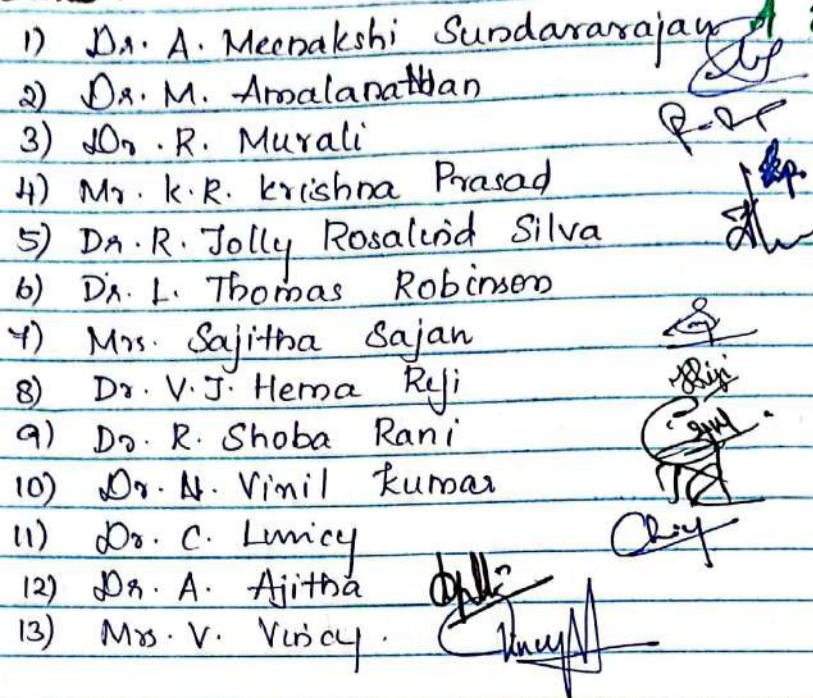 1) Dr. A. Meenakshi Sundararajan
2) Dr. M. Amalanathan
3) Dr. R. Murali
4) Mr. K. R. Krishna Prasad
5) Dr. R. Jolly Rosalind Silva
6) Dr. L. Thomas Robinson
7) Mrs. Sajitha Sajan
8) Dr. V. J. Hema Reji
9) Dr. R. Shoba Rani
10) Dr. N. Vimil Kumar
11) Dr. C. Linicy
12) Dr. A. Ajitha
13) Mrs. V. Vincy.